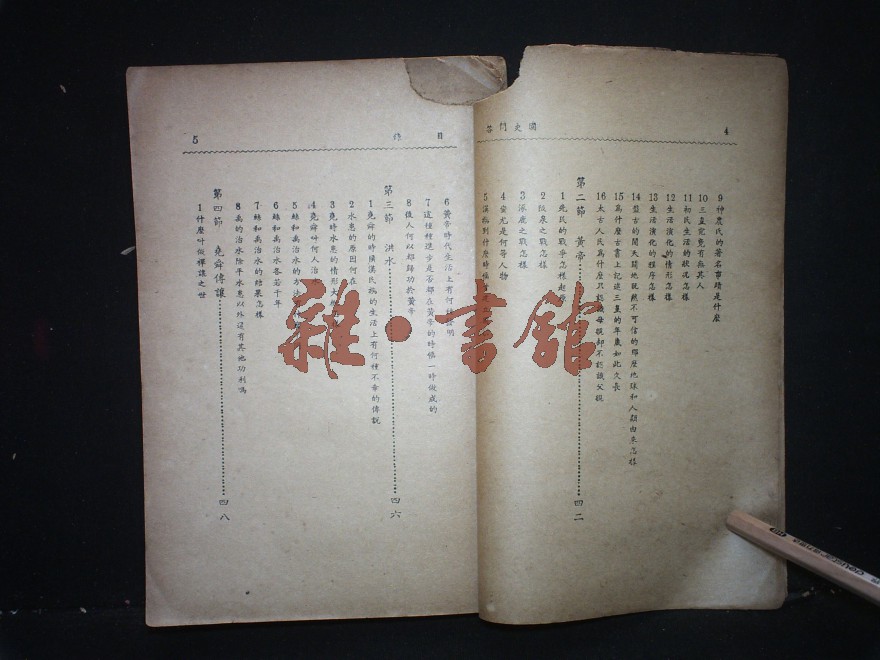 國史問答
4
9 神農氏的著名事蹟是什麼
10 三皇究竟有無其人
11 初民生活的狀況怎樣
12 生活演化的情形怎樣
13 生活演化的程序怎樣
14 盤古的開天闢地既然不可信的那麼地球和人類由來怎樣
15 爲什麼古書上記述三皇的年歲如此久長
16 太古人民爲什麼只認識母親却不認識父親
第二節 黃帝 四二
1 先民的戰爭怎樣起
2 阪泉之戰怎樣
3 涿鹿之戰怎樣
4 蚩尤是何等人物
5 漢族到什麼時候
目錄
5
6 黃帝時代生活上有何發明
7 這種種進步是否都在黃帝的時候一時做成的
8 後人何以都歸功於黃帝
第三節 洪水 四六
1 堯舜的時候漢民族的生活上有何種不幸的傳說
2 水患的原因何在
3 堯時水患的情形
4 堯舜叫何人治
5 鯀和禹治水的方法
6 鯀和禹治水各若干年
7 鯀和禹治水的結果怎樣
8 禹的治水除平水患以外還有其他功利嗎
第四節 堯舜傳讓 四八
1 什麼叫做禪讓之世
雜·書館